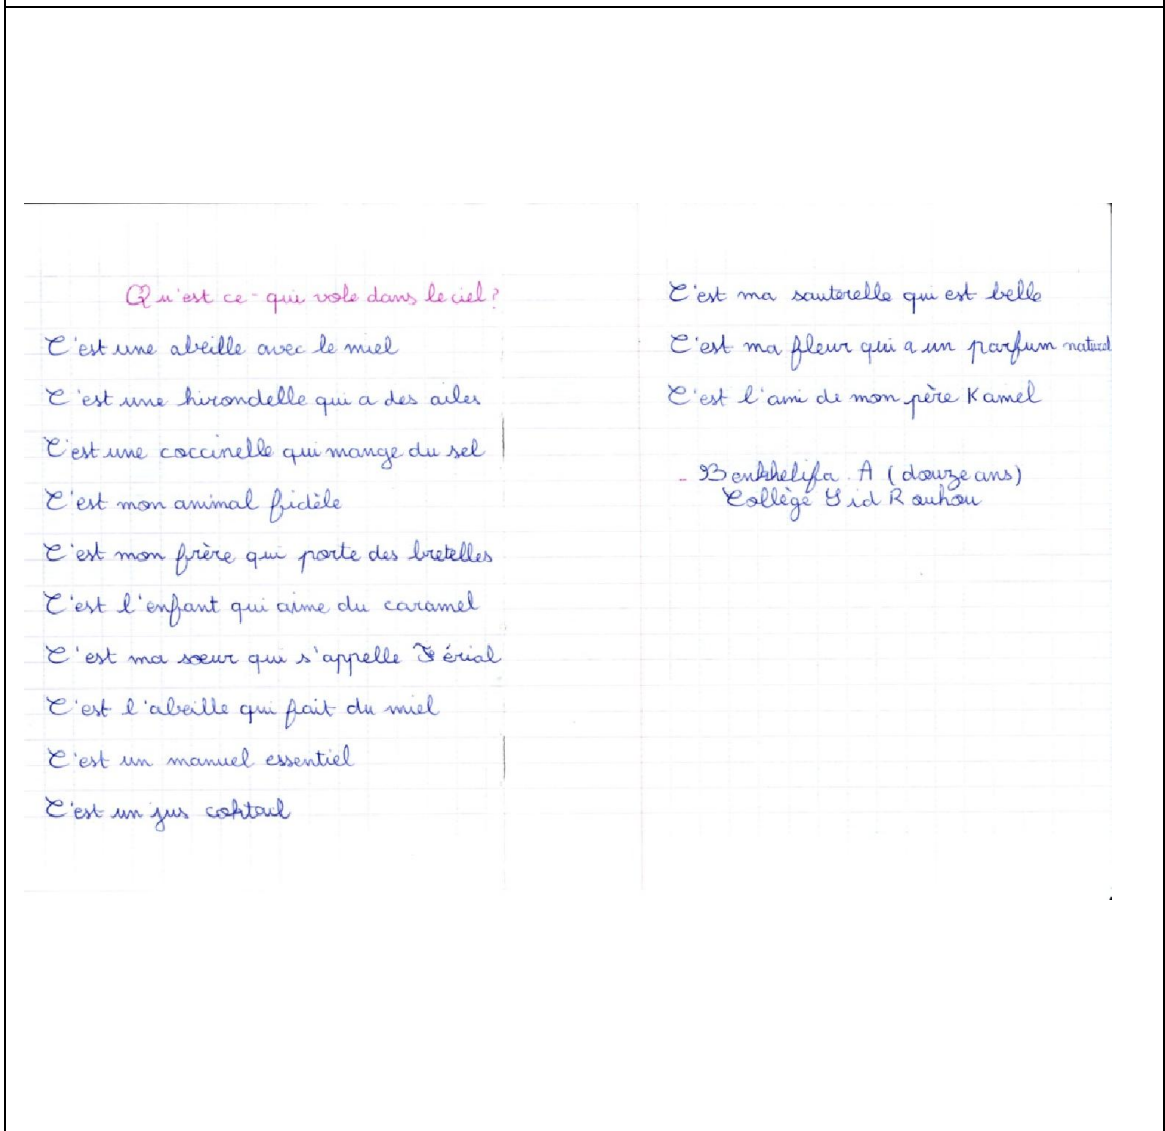 Qu'est ce-qui vole dans le ciel?
C'est une abeille avec le miel
C'est une hirondelle qui a des ailes
C'est une coccinelle qui mange du sel
C'est mon animal fidèle
C'est mon frère qui porte des bretelles
C'est l'enfant qui aime du caramel
C'est ma sœur qui s'appelle Férial
C'est l'abeille qui fait du miel
C'est un manuel essentiel
C'est un jus
C'est ma sauterelle qui est belle
C'est ma fleur qui a un parfum
C'est l'ami de mon père Kamel
- Benkhelifa. A (douze ans)
Collège Sid Rouhou